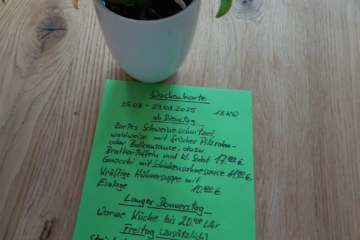 Wochenkarte
25.03 - 29.03.2025 13.KW
ab Dienstag
zartes Schweineschnitzel,
wahlweise mit frischer Pilzrahm-
oder Balkansauce, dazu
Bratkartoffeln und kl. Salat 17.90 €
Gnocchi mit Schinkensahnesauce
Kräftige Hühnersuppe mit
Einlage 10.90 €
Langer Donnerstag
Warme Küche bis 20.30 Uhr
Freitag (zusätzlich)